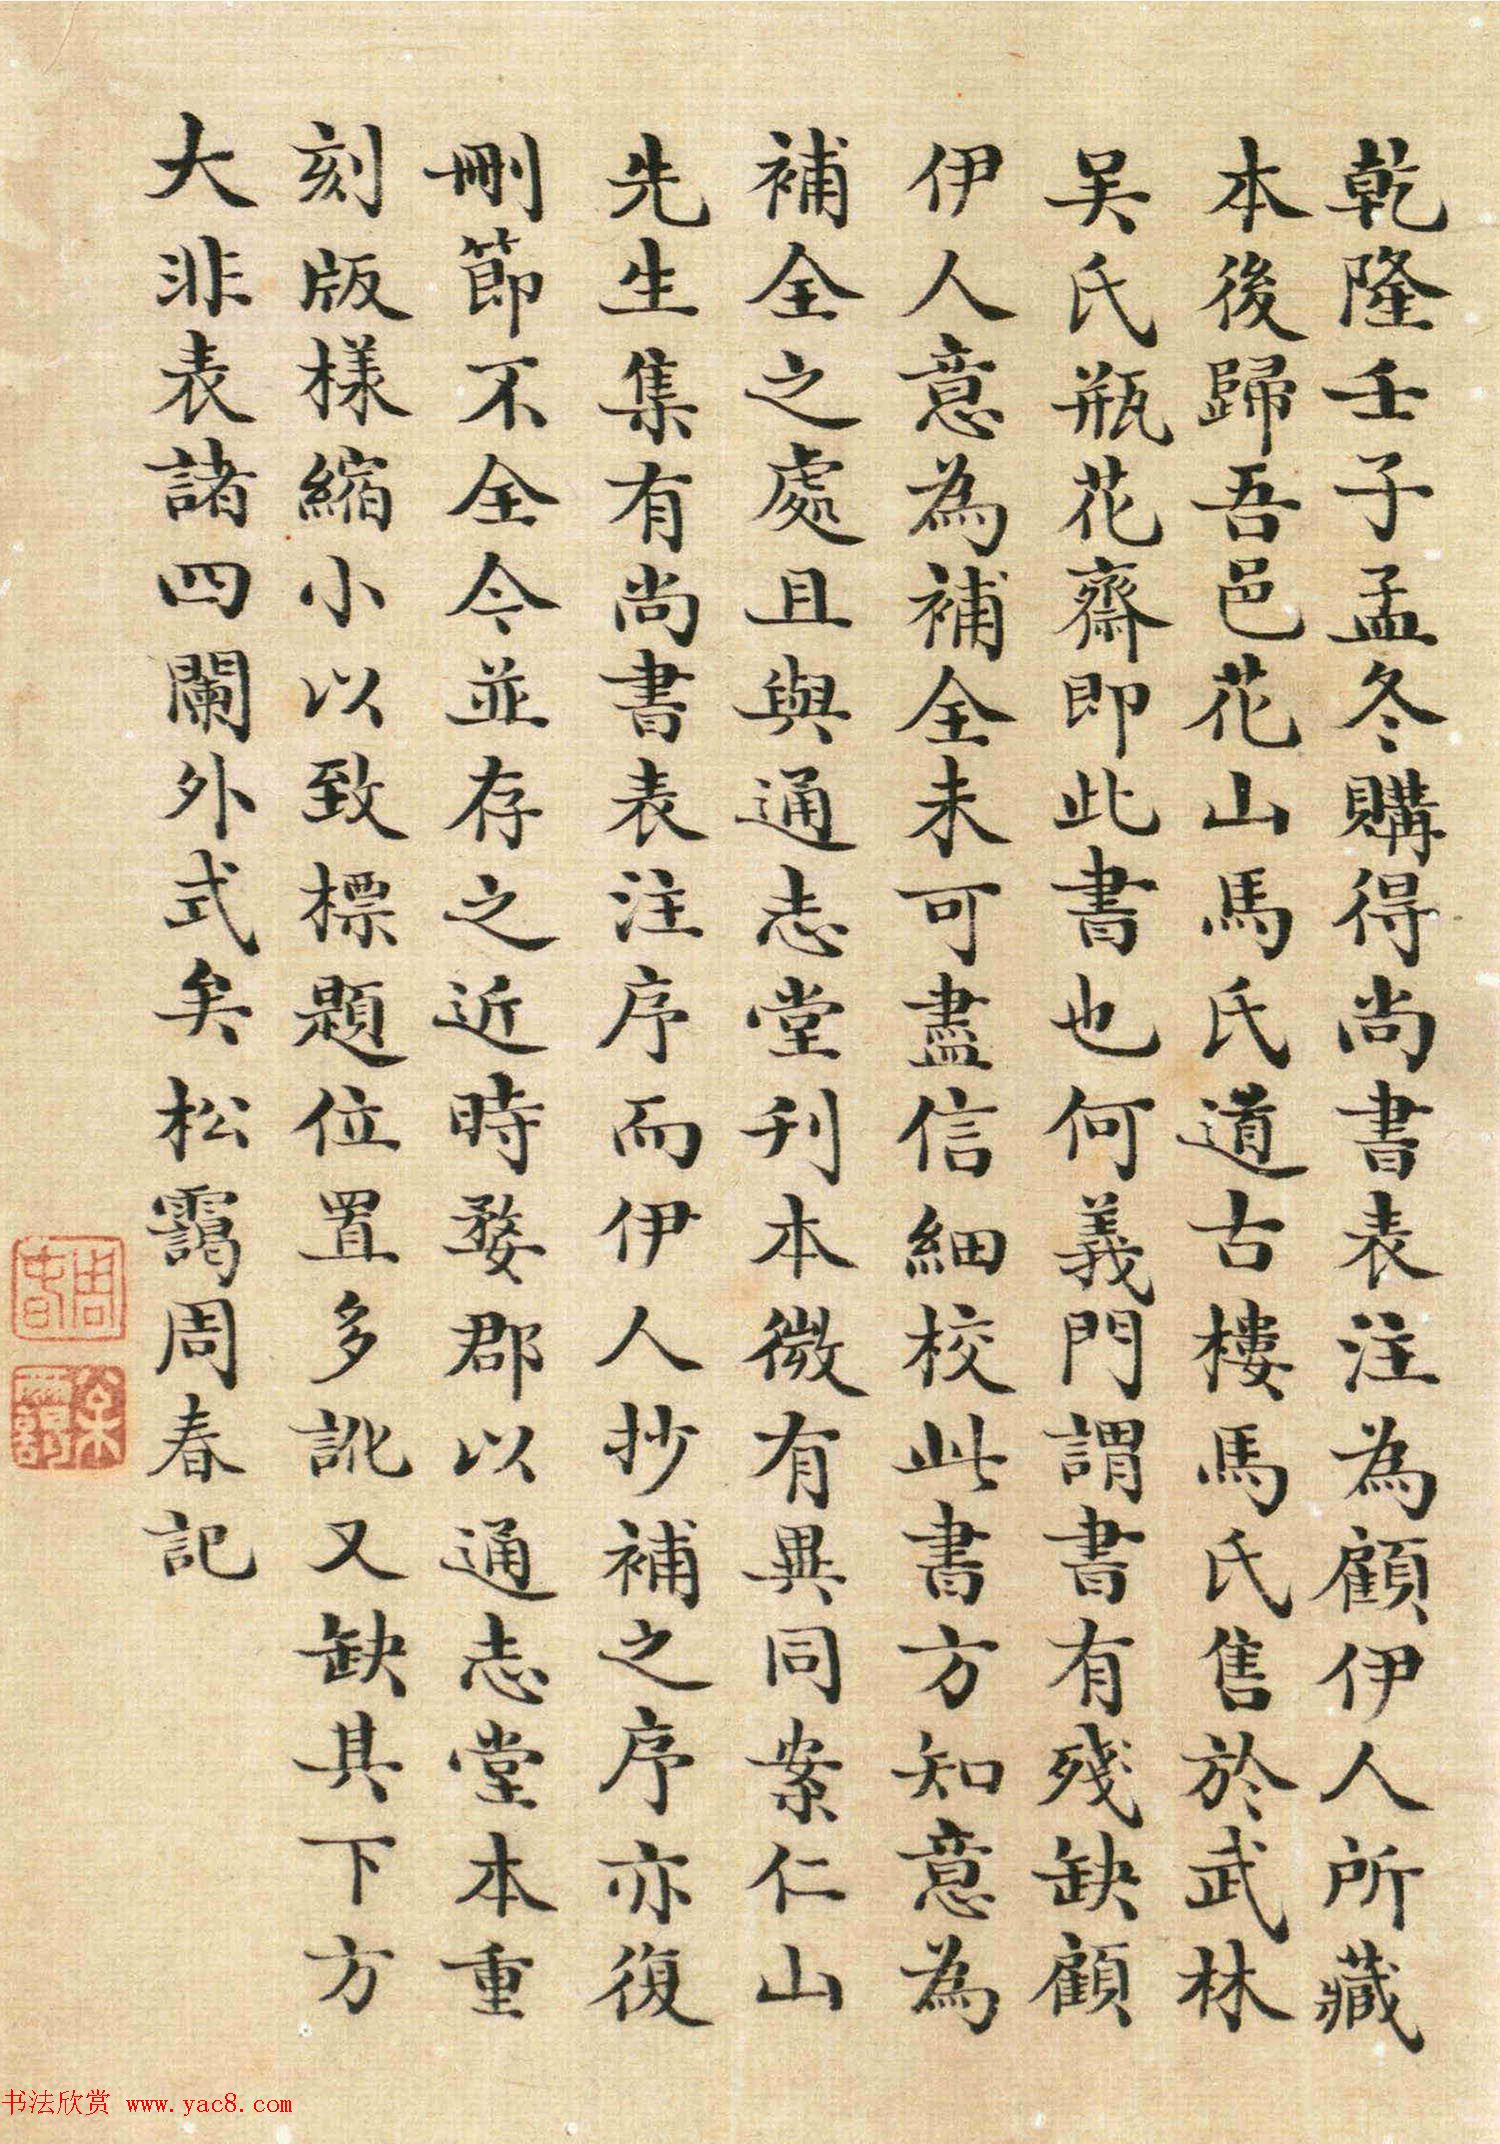 乾隆壬子孟冬購得尚書表注為顧伊人所藏
本後歸吾邑花山馬氏道古樓馬氏售於武林
吴氏瓶花齋即此書也何義門謂書有殘缺顧
伊人意為補全未可盡信細校此書方知意為
補全之處且與通志堂刊本微有異同案仁山
先生集有尚書表注序而伊人抄補之序亦復
刪節不全今並存之近時婺郡以通志堂本重
刻版樣縮小以致標題位置多訛又缺其下方
大非表諸四闌外式矣松靄周春記
周春
松靄
书法欣赏 www.yac8.com